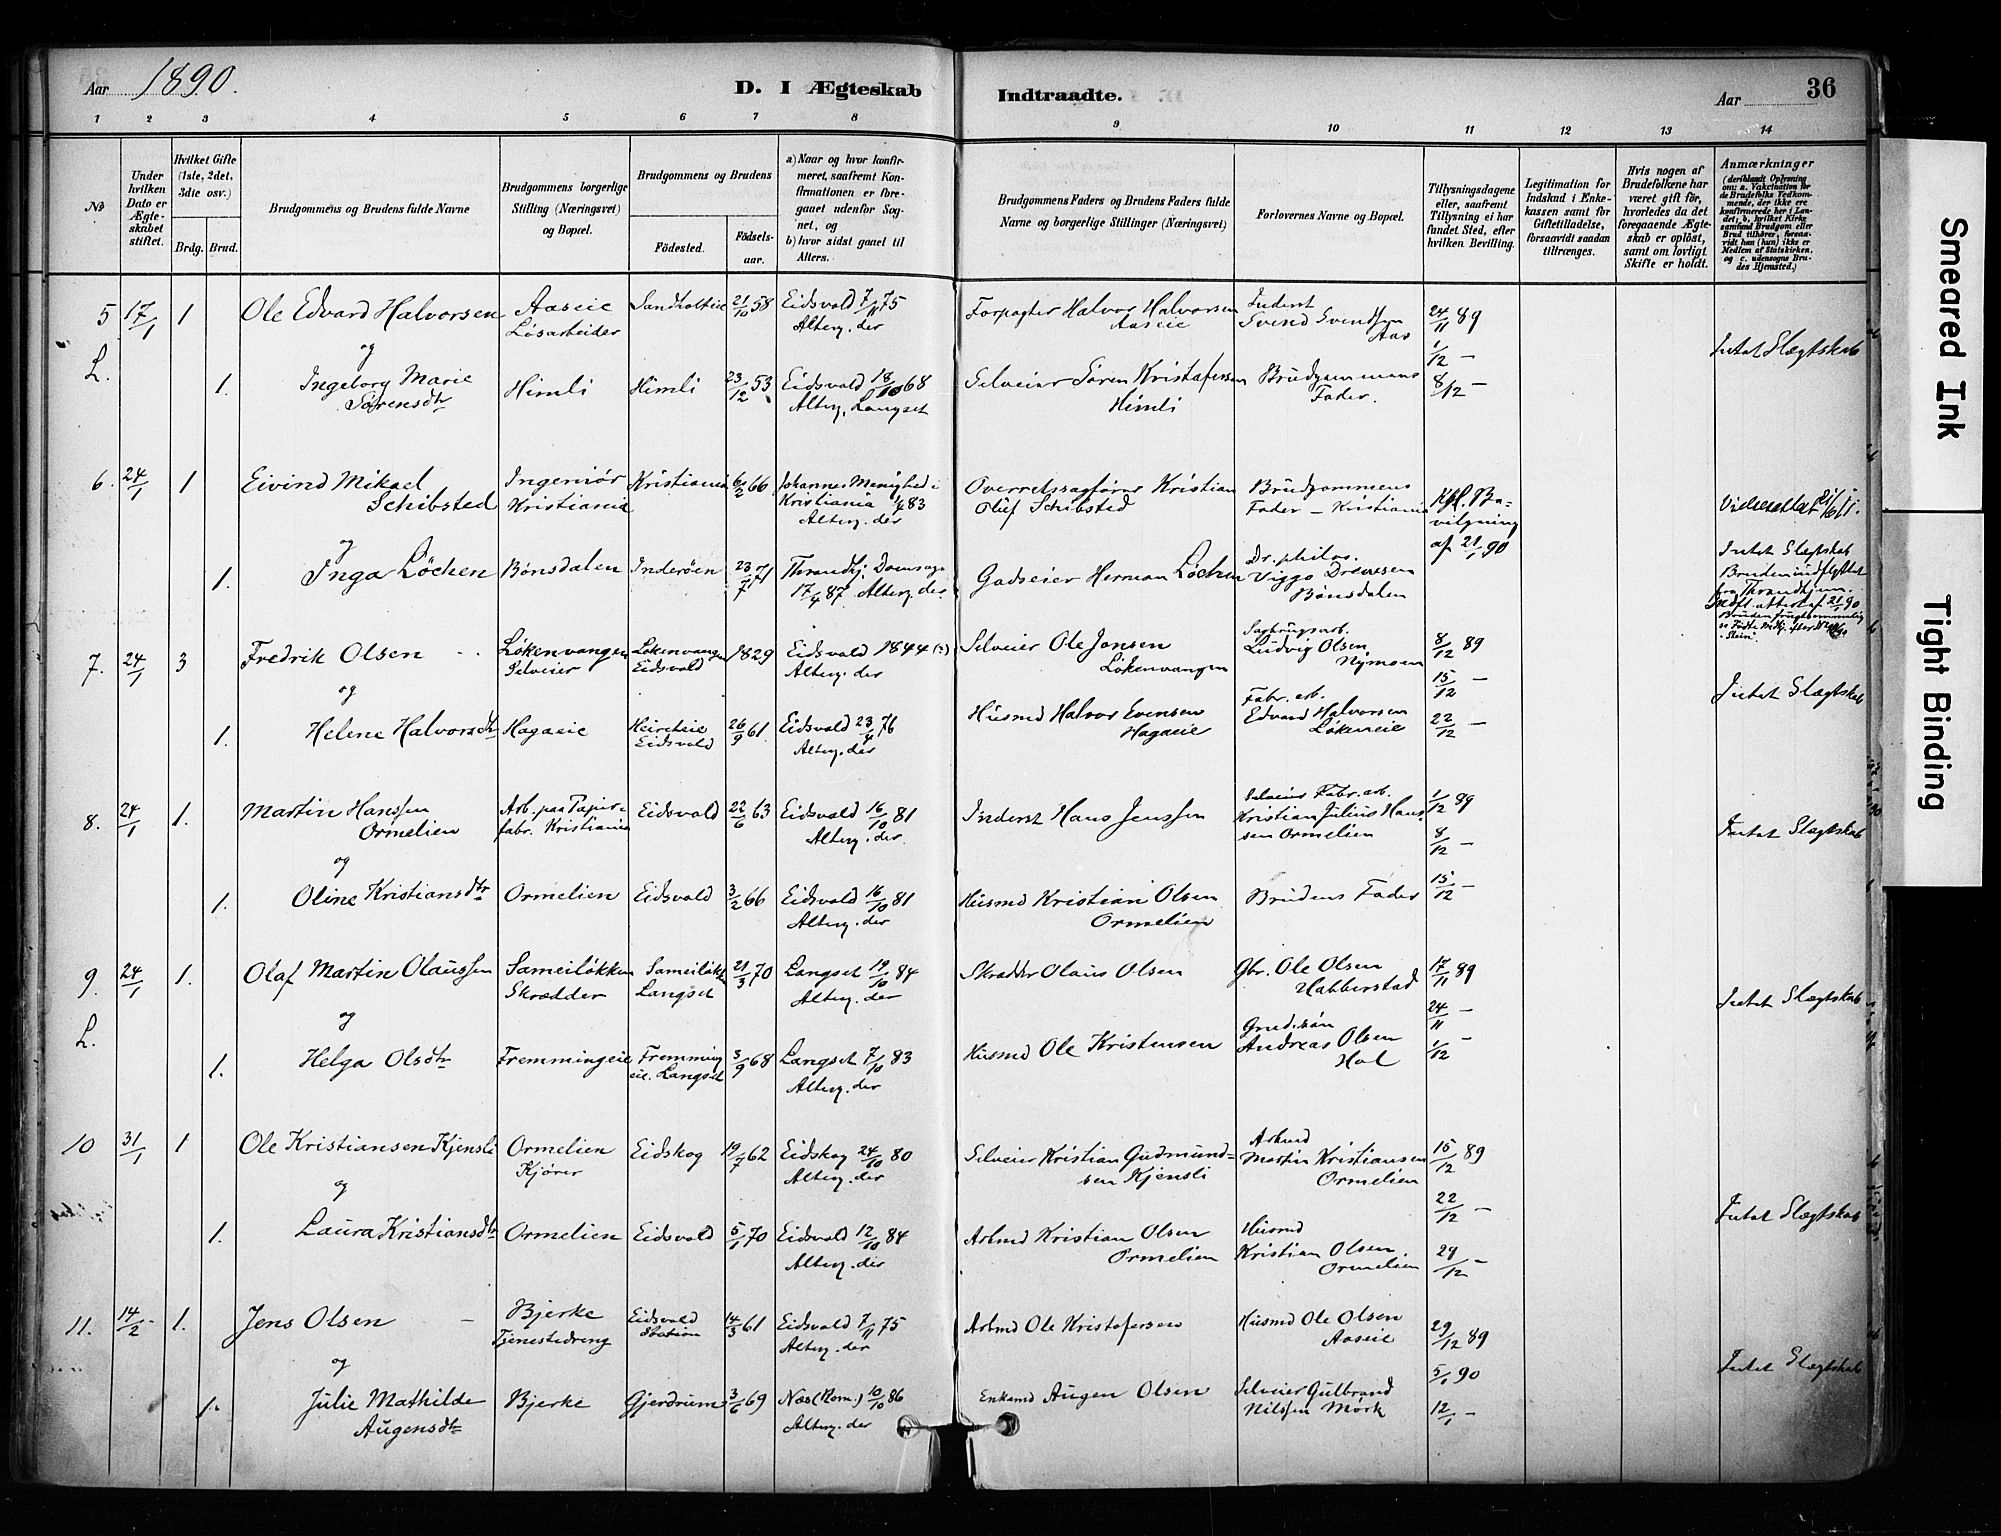 Aar 1890.
D. I Ægteskab
Indtraadte.
Aar
36
1 2 3 4 5 6 7 8
9 10 11 12 13 14
No
Under hvilken Dato er Ægteskabet stiftet.
Hvilket Gifte (1ste, 2det, 3die osv.)
Brdg. Brud.
Brudgommens og Brudens fulde Navne
Brudgommens borgerlige Stilling (Næringsvei) og Bopæl.
Brudgommens og Brudens
Fødested.
Fødsels-aar.
a) Naar og hvor konfirmeret, saafremt Konfirmationen er foregaaet udenfor Sognet, og
b) hvor sidst gaaet til Alters.
Brudgommens Faders og Brudens Faders fulde Navne og borgerlige Stillinger (Næringsvei)
Forlovernes Navne og Bopæl.
Tillysningsdagene eller, saafremt Tillysning ei har fundet Sted, efter hvilken Bevilling.
Legitimation for Indskud i Enkekassen samt for Giftetilladelse, forsaavidt saadan tiltrænges.
Hvis nogen af Brudefolkene har været gift før, hvorledes da det foregaaende Ægteskab er opløst, samt om lovligt Skifte er holdt.
Anmærkninger
(deriblandt Oplysning om: a. Vakcination for de Brudefolks Vedkommende, der ikke ere konfirmerede her i Landet; b. hvilket Kirkesamfund Brudgom eller Brud tilhører, forsaavidt han (hun) ikke er Medlem af Statskirken, og c. udensogns Brudes Hjemsted.)
5 17/1 1 Ole Edvard Halvorsen Aaseie Løsarbeider Sandholteie 21/10 58 Eidsvold 7/11 75 Alterg. der Forpagter Halvor Halvorsen Aaseie Inderst Svend Svendsen Aas 24/11 89
L. og 1/12 — Intet Slægtskab
1. Ingeborg Marie Sørensdtr Himli Himli 23/12 53 Eidsvold 18/10 68 Alterg. Langset Selveier Søren Kristofersen Himli Brudgommens Fader. 8/12 —
6. 24/1 1 Eivind Mikael Schibsted Ingeniør Kristiania Kristiania 6/2 66 Johannes Menighed i Kristiania 1/4 83 Alterg. der Overretssagfører Kristian Oluf Schibsted Brudgommens Fader — Kristiania Kgl. Bevilgning af 21/1 90
og Intet Slægtskab
1. Inga Löchen Bönsdalen Inderøen 23/7 71 Throndhj. Domsogn 17/4 87 Alterg. der Godseier Herman Löchen Dr. philos. Viggo Drewsen Bönsdalen Bruden indflyttet fra Throndhjem.
7. 24/1 3 Fredrik Olsen Løkenvangen Selveier Løkenvangen Eidsvold 1829 Eidsvold 1844 (?) Alterg. der Selveier Ole Jonsen Løkenvangen Sagbrugsarb. Ludvig Olsen Nymoen 8/12 89
og 15/12 — Intet Slægtskab
1. Helene Halvorsdtr Hagaeie Eidsvold 26/9 61 Eidsvold 23/4 76 Alterg. der Husmd Halvor Evensen Hagaeie Fabr. arb. Edvard Halvorsen Løkeneie 22/12 —
8. 24/1 1. Martin Hanssen Ormelien Arb. paa Papirfabr. Kristiania Eidsvold 22/6 63 Eidsvold 16/10 81 Alterg. der. Inderst Hans Jenssen Fabr. arb. Kristian Julius Hanssen Ormelien 1/12 89
og 8/12 — Intet Slægtskab
1. Oline Kristiansdtr Ormelien Eidsvold 3/2 66 Eidsvold 16/10 81 Alterg. der Husmd Kristian Olsen Ormelien Brudens Fader 15/12 —
9. 24/1 1. Olaf Martin Olaussen Sameiløkken Skrædder Sameiløkk Langset 21/3 70 Langset 19/10 84 Alterg. der Skrædder Olaus Olsen Gbr. Ole Olsen Habberstad 17/11 89
L. og 24/11 — Intet Slægtskab
1. Helga Olsdtr Fremmingeie Fremming eie. Langset 3/9 68 Langset 7/10 83 Alterg. der Husmd Ole Kristensen Grud.søn Andreas Olsen Hol 1/12 —
10 31/1 1 Ole Kristiansen Kjensli Ormelien Kjører Eidskog 19/7 62 Eidskog 24/10 80 Alterg. der Selveier Kristian Gudmundsen Kjensli Arbmd Martin Kristiansen Ormelien 15/12 89
og 22/12 — Intet Slægtskab
1. Laura Kristiansdtr Ormelien Eidsvold 5/1 70 Eidsvold 12/10 84 Alterg. der Arbmd Kristian Olsen Ormelien Husmd Kristian Olsen Ormelien 29/12 —
11. 14/2 1. Jens Olsen Bjerke Tjenestedreng Eidsvold Station 14/3 61 Eidsvold 7/11 75 Alterg. der Arbmd Ole Kristofersen Husmd Ole Olsen Aaseie 29/12 89
og 5/1 90 Intet Slægtskab
1. Julie Mathilde Augensdtr Bjerke Gjerdrum 3/6 69 Næs (Rom.) 10/10 86 Alterg. der Enkemd Augen Olsen Selveier Gulbrand Nilssen Mørk 12/1 —
Smeared Ink
Tight Binding